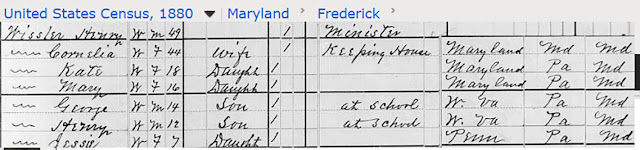 United States Census, 1880 ▼ Maryland › Frederick ›
Wissler Henry W M 49 / Minister
〃 Cornelia W F 44 Wife / Keeping House Maryland Md Md
〃 Kate W F 18 Daught / Maryland Pa Md
〃 Mary W F 16 Daught / Maryland Pa Md
〃 George W M 14 Son / at School W. Va Pa Md
〃 Henry W M 12 Son / at School W. Va Pa Md
〃 Jessie W F 7 Daught / Penn Pa Md